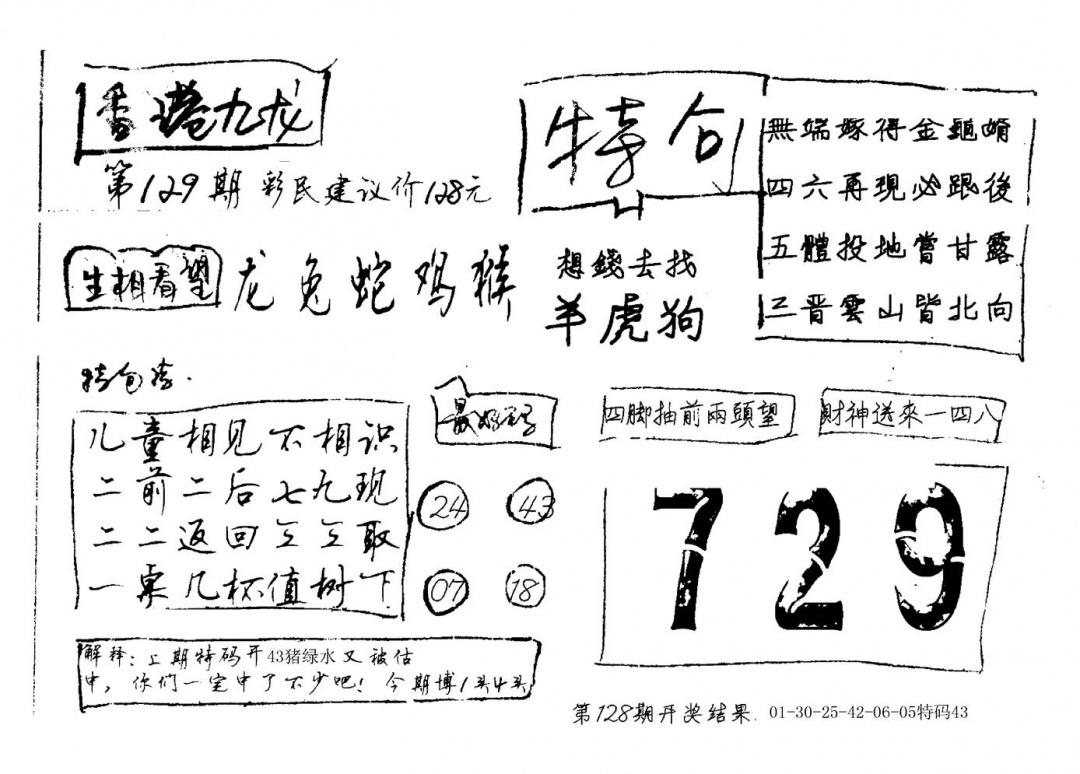 香港九龙
第129期 彩民建议价128元
特句
無端嫁得金龜婿
四六再現必跟後
五體投地嘗甘露
三晋雲山皆北向
生相看望 龙兔蛇鸡猴
想錢去找
羊虎狗
儿童相见不相识
二前二后七九现
二二返回互互取
一桌几杯值树下
24 43
07 18
四脚抽前兩頭望
財神送來一四八
729
解释：上期特码开43猪绿水又被估
中，你们一定中了不少吧！今期博1头4头
第128期开奖结果 01-30-25-42-06-05特码43